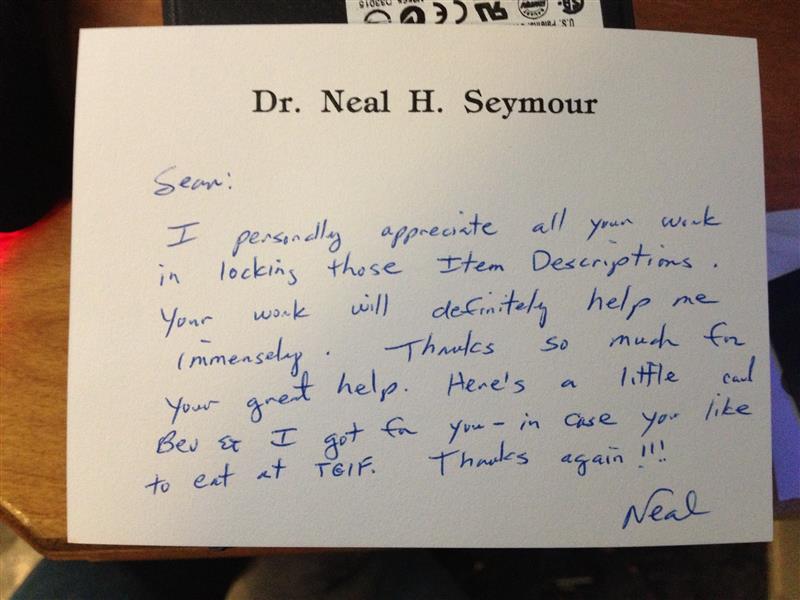 U.S. Patent
Dr. Neal H. Seymour
Sean:
I personally appreciate all your work
in locking those Item Descriptions.
Your work will definitely help me
immensely. Thanks so much for
your great help. Here's a little card
Bev & I got for you - in case you like
to eat at TGIF. Thanks again!!!
Neal